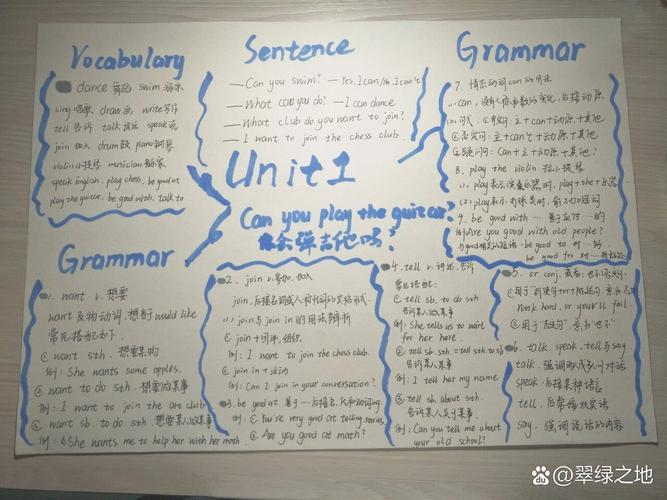 Vocabulary
dance 舞蹈 swim 游泳
sing 唱歌 draw 画 write 写作
tell 告诉 talk 说话 speak 说
join 加入 drum 鼓 piano 钢琴
violin 小提琴 musician 音乐家
speak English, play chess, be good at
play the guitar, be good with, talk to
Sentence
— Can you swim? — Yes, I can/No, I can't
— What can you do? — I can dance
— What club do you want to join?
— I want to join the chess club.
Grammar
7. 情态动词 can 的用法
1. can, 没有人称和数的变化, 后接动原
主+can+动原+其他
主+can't+动原+其他
Can+主+动原+其他?
8. play the violin 拉小提琴
(1) play表示演奏乐器时, play+the+乐器
(2) play表示
9. be good with …
Are you good with old people?
be good to 对…好
be good for
Unit 1
Can you play the guitar?
你会弹吉他吗?
Grammar
1. want v. 想要
want 及物动词, 想要 would like
常见搭配如下
① want sth. 想要某物
例: She wants some apples.
② want to do sth 想要做某事
例: I want to join the art club
③ want sb. to do sth 想要某人做某事
例: She wants me to help her with her math
2. join v. 参加, 加入
(1) join 与 join in 的用法辨析
① join + 团体, 组织
例: I want to join the chess club.
② join in + 活动
例: Can I join in your conversation?
3. be good at 善于
① You're very good at telling stories
② Are you good at math?
4. tell v. 讲述, 告诉
常见搭配:
① tell sb. to do sth
告诉某人做某事
例: She tells us to wait
for her here.
② tell sb. sth = tell sth to sb
告诉某人某事
例: I tell her my name
③ tell sb. about sth
告诉某人关于某事
例: Can you tell me about
your old school?
5. or conj. 或者, 也不
Work hard, or you'll fail.
6. talk, speak, tell与say
talk, 强调两人或多人对话
speak, 后接某种语言
tell, 后常接双宾语
say, 强调说话的内容
@翠绿之地